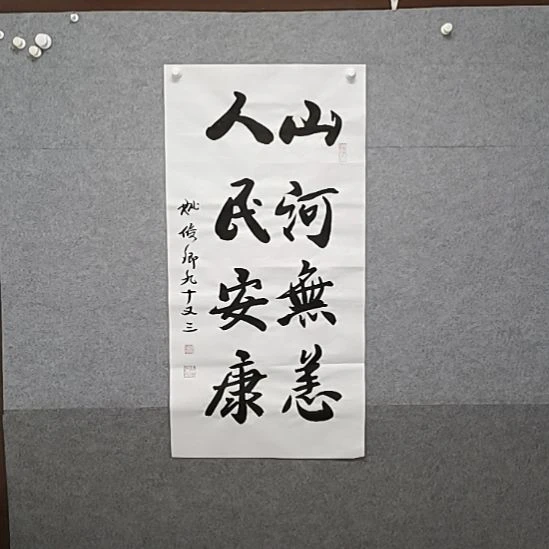 山河無恙
人民安康
姚俊卿九十又三